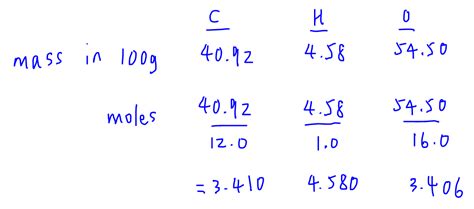 C H O
mass in 100g 40.92 4.58 54.50
moles 40.92/12.0 4.58/1.0 54.50/16.0
=3.410 4.580 3.406